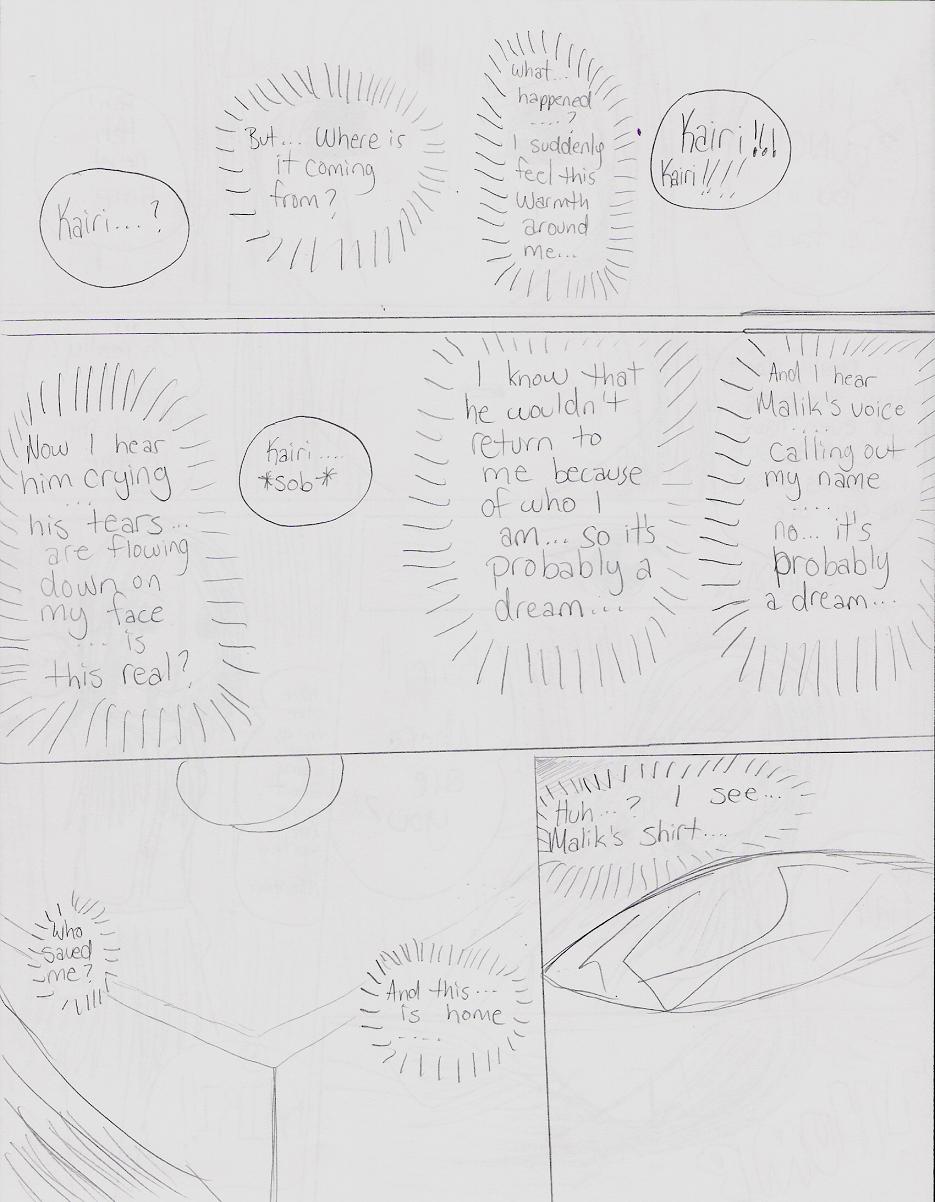 Kairi!!!
Kairi!!!!
What...
happened
....?
I suddenly
feel this
Warmth
around
me...
But... Where is
it coming
from?
Kairi...?
And I hear
Malik's voice
....
calling out
my name
....
no... it's
probably
a dream...
I know that
he wouldn't
return to
me because
of who I
am... so it's
probably a
dream...
Kairi....
*sob*
Now I hear
him crying
...
his tears...
are flowing
down on
my face
... is
this real?
Huh...? I see...
Malik's shirt....
And this...
is home
....
Who
saved
me?